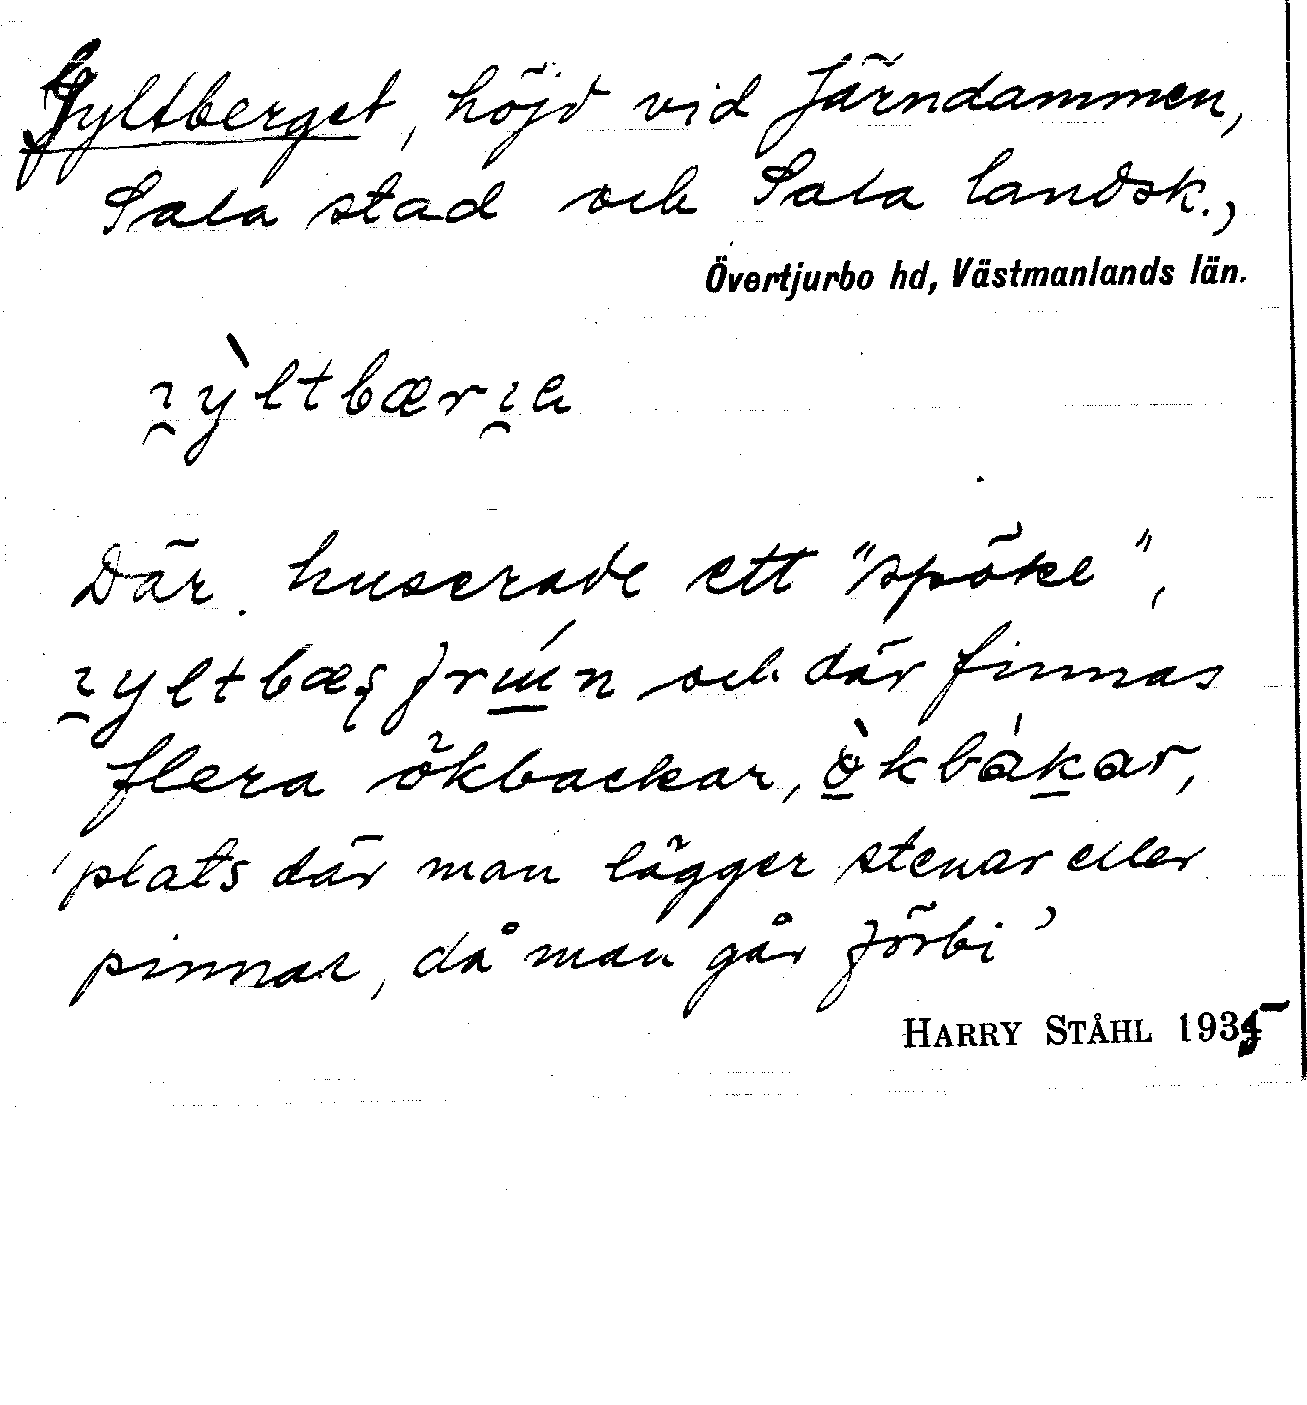 Gyltberget, höjd vid Järndammen,
Sala stad och Sala landsk.,
Övertjurbo hd, Västmanlands län.
Där huserade ett "spöke",
och där finnas
flera ökbackar, ò̱kbáḵar,
'plats där man lägger stenar eller
pinnar, då man går förbi'
HARRY STÅHL 1935